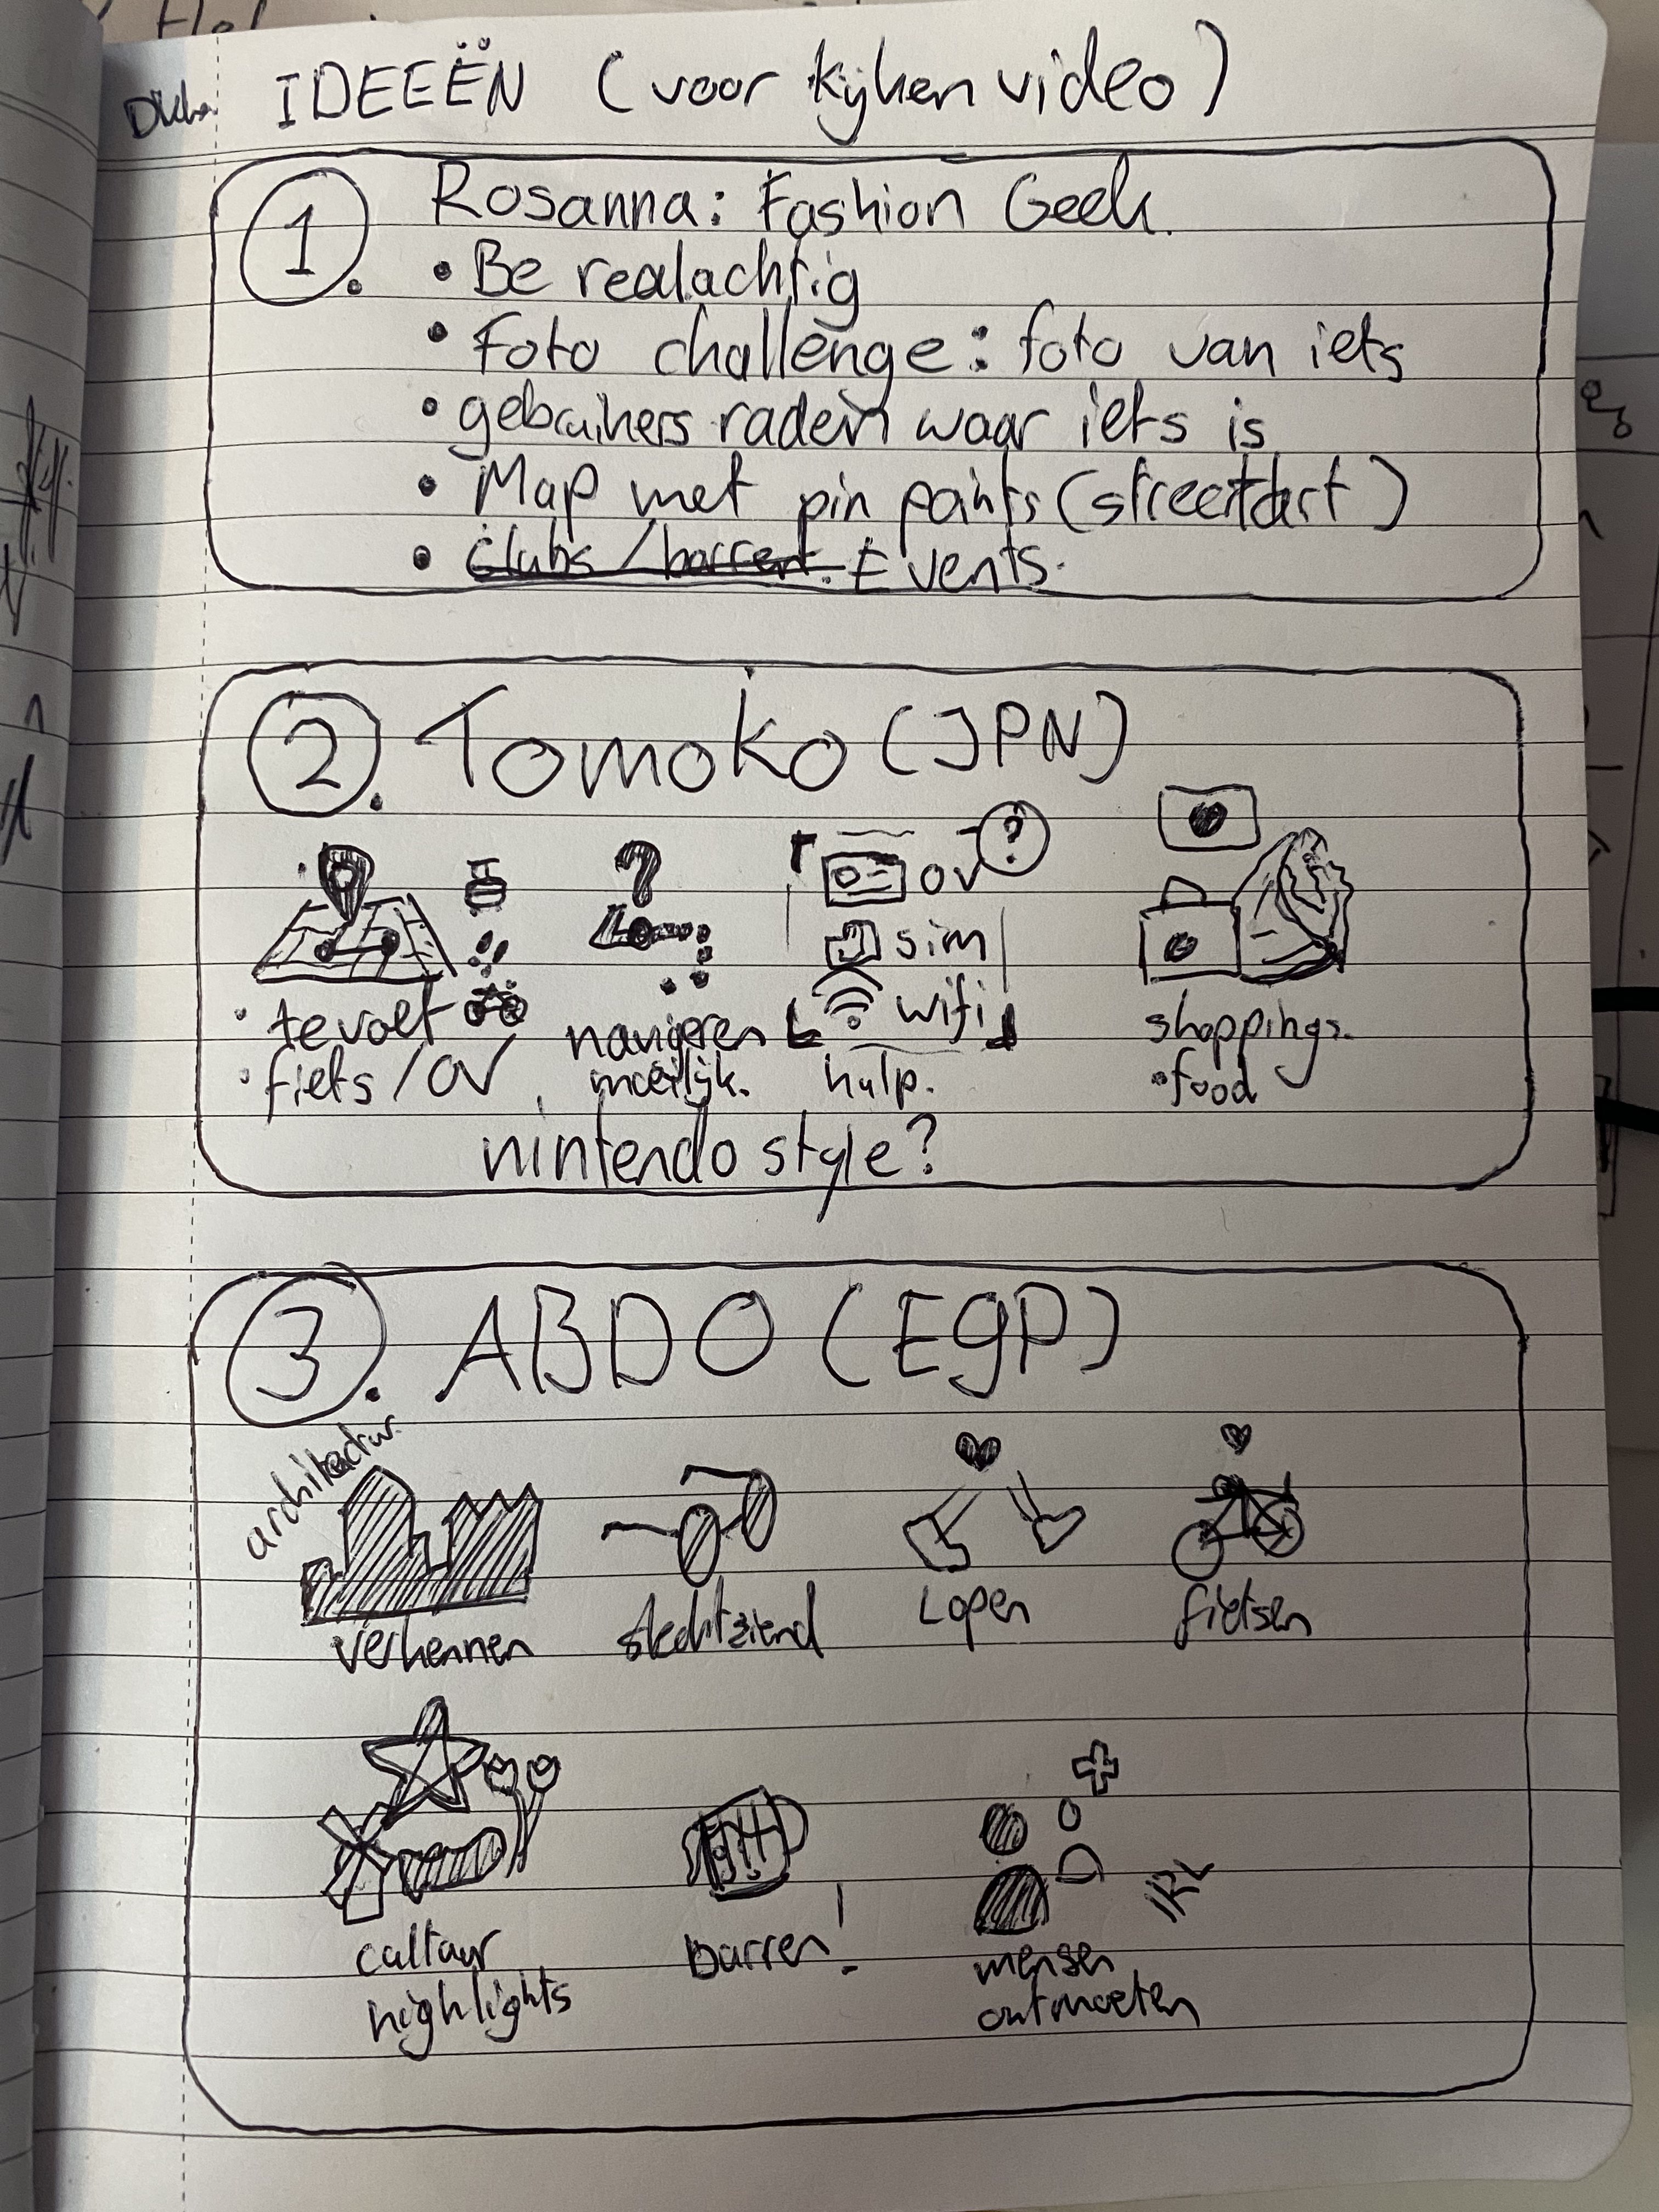 IDEEËN (voor kijken video)
1. Rosanna: Fashion Geek.
• Be realachtig
• Foto challenge: foto van iets
• gebruikers raden waar iets is
• Map met pin points (streetart)
• Clubs / barren. Events.
2. Tomoko (JPN)
? OV
sim
wifi
• te voet
• fiets / OV
navigeren
moeilijk.
hulp.
shoppings.
• food
nintendo style?
3. ABDO (EGP)
architectuur.
verkennen
slechtziend
Lopen
fietsen
cultuur
highlights
barren!
mensen
ontmoeten
IRL